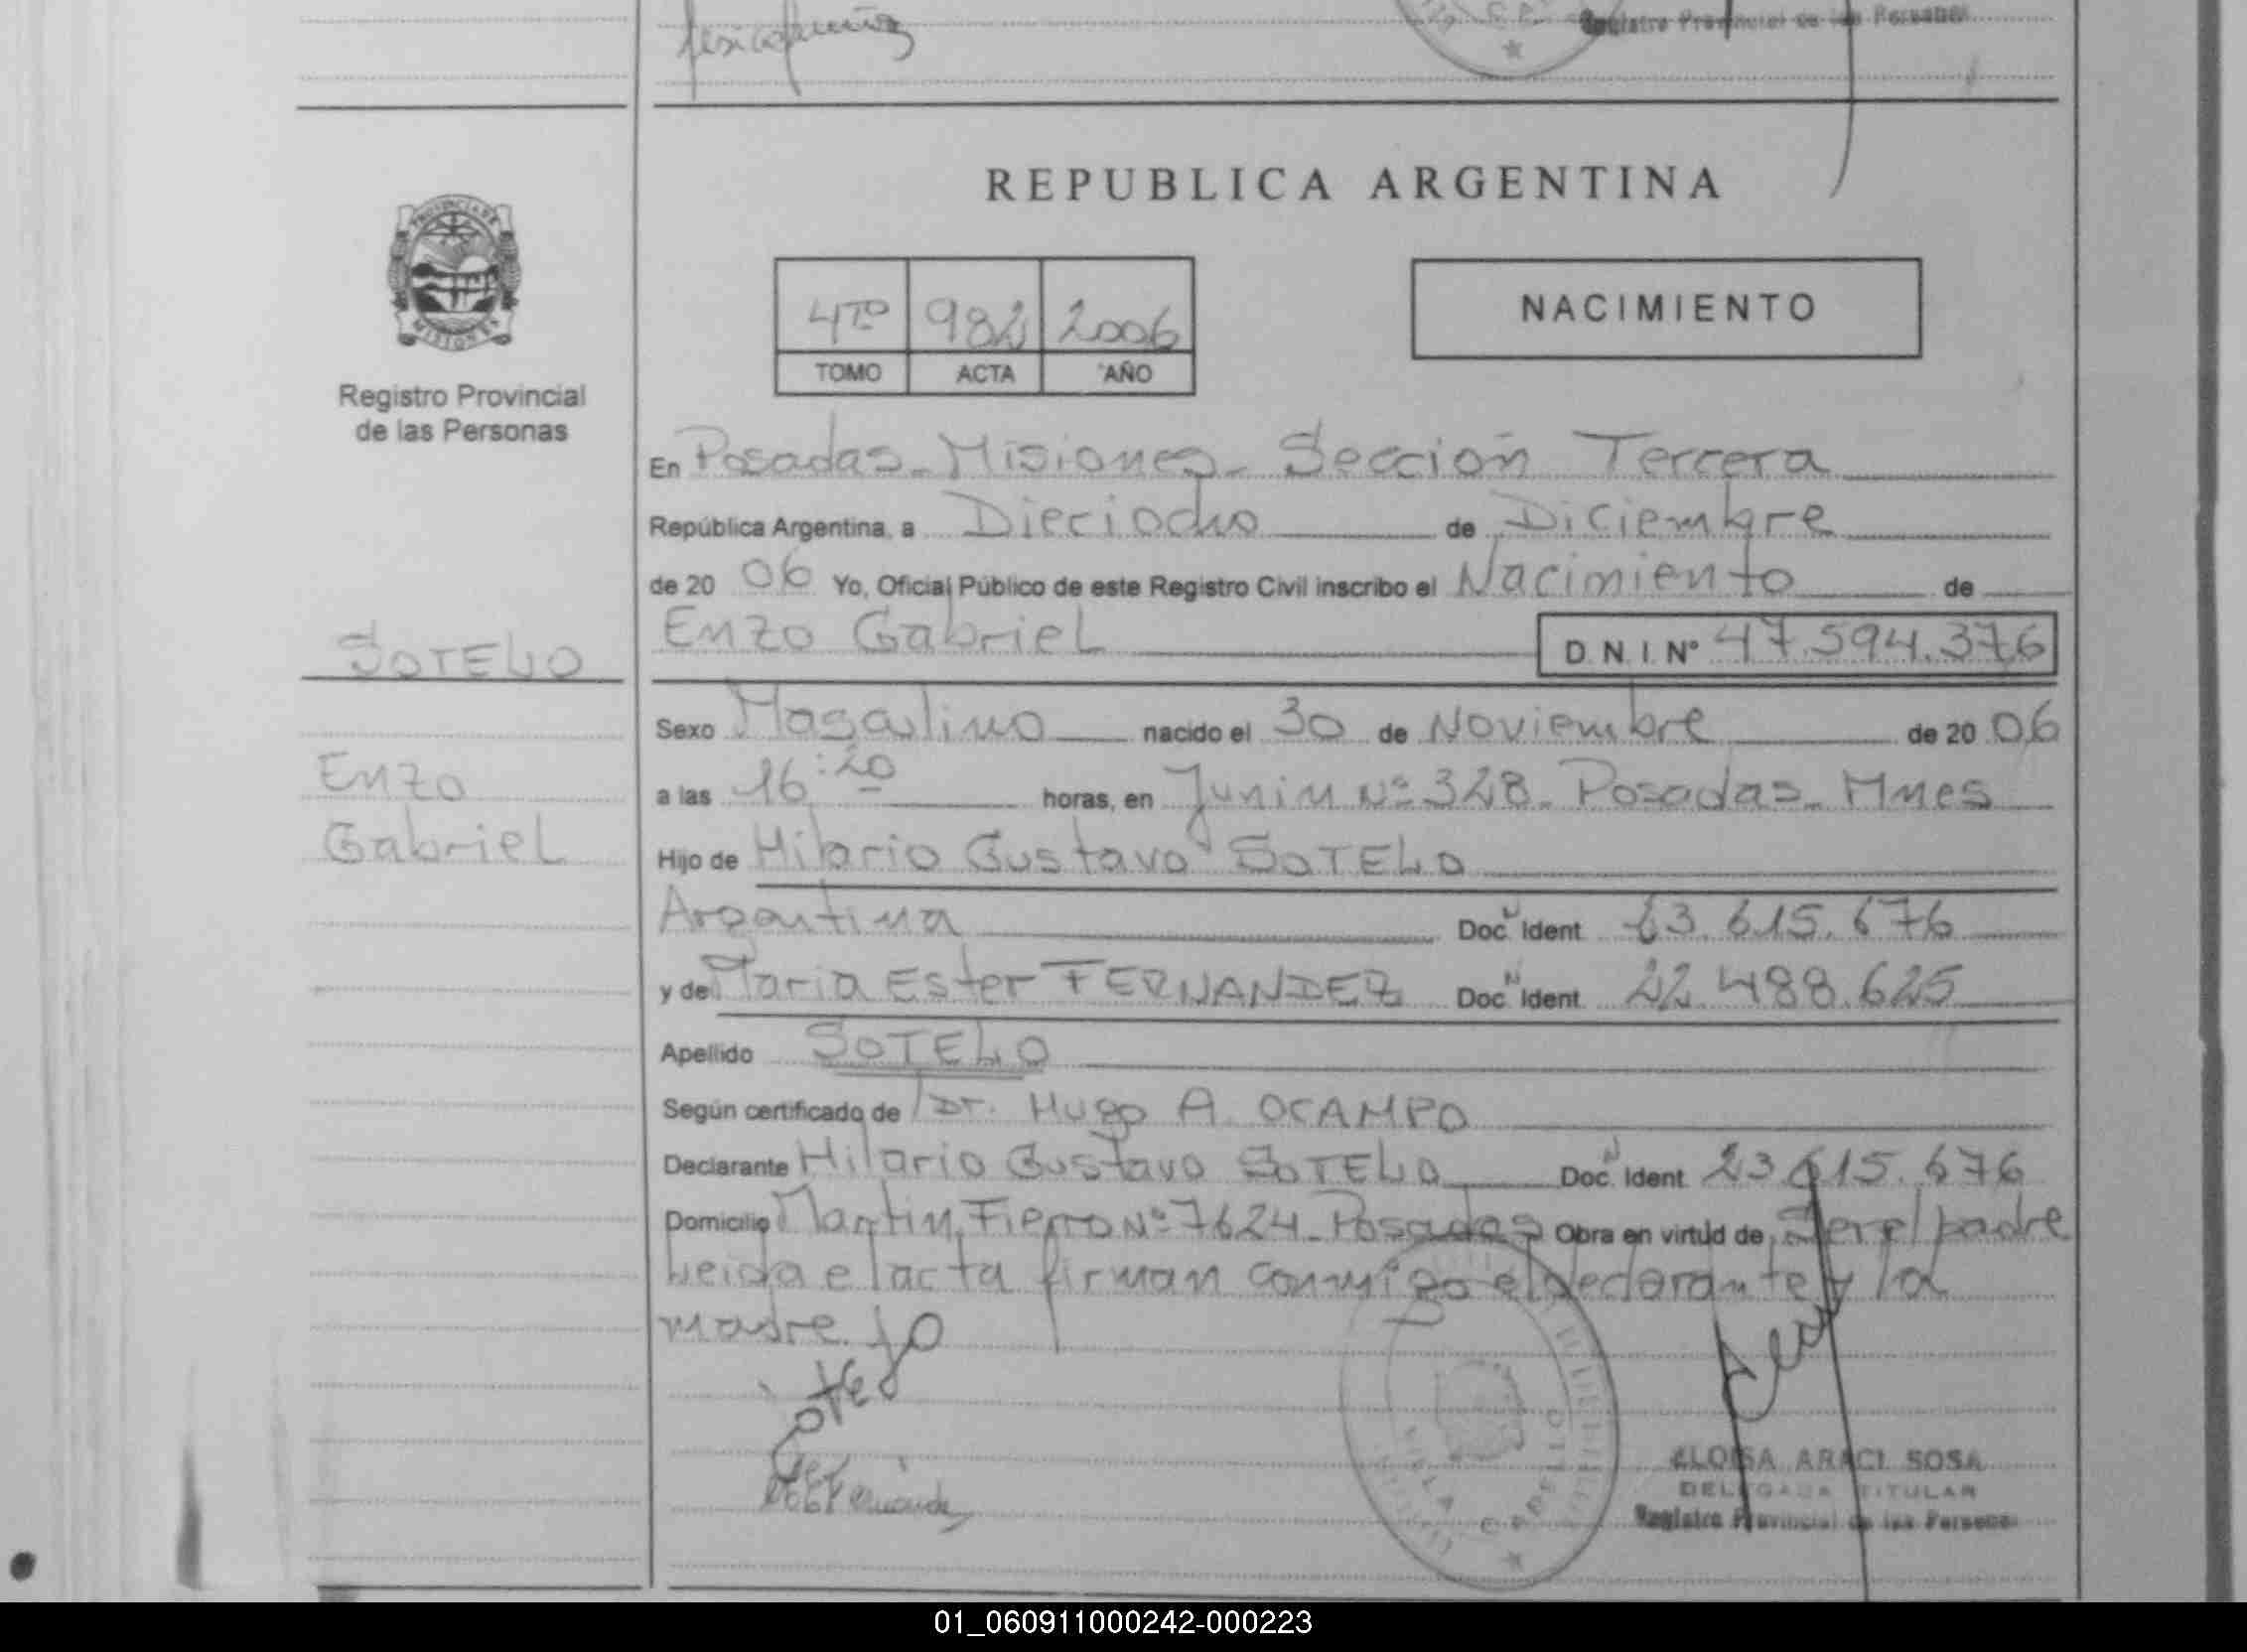 Registro Provincial de las Personas
REPUBLICA ARGENTINA
PROVINCIA DE
MISIONES
Registro Provincial
de las Personas
4to 982 2006
TOMO ACTA AÑO
NACIMIENTO
En Posadas - Misiones - Sección Tercera
República Argentina, a Dieciocho de Diciembre
de 20 06 Yo, Oficial Público de este Registro Civil inscribo el Nacimiento de
SOTELO
Enzo Gabriel D.N.I. N° 47.594.376
Sexo Masculino nacido el 30 de Noviembre de 20 06
Enzo
a las 16:20 horas, en Junin Nº 328 - Posadas - Mnes
Gabriel
Hijo de Hilario Gustavo SOTELO
Argentina Doc. Ident 23.615.676
y de Maria Ester FERNANDEZ Doc. Ident. 22.488.625
Apellido SOTELO
Según certificado de Dr. Hugo A. OCAMPO
Declarante Hilario Gustavo SOTELO Doc. Ident. 23.615.676
Domicilio Martin Fierro Nº 7624 - Posadas Obra en virtud de Ser el padre
Leida el acta firman conmigo el declarante y la
madre
Sotelo
ELOISA ARACI SOSA
DELEGADA TITULAR
Registro Provincial de las Personas
01_060911000242-000223